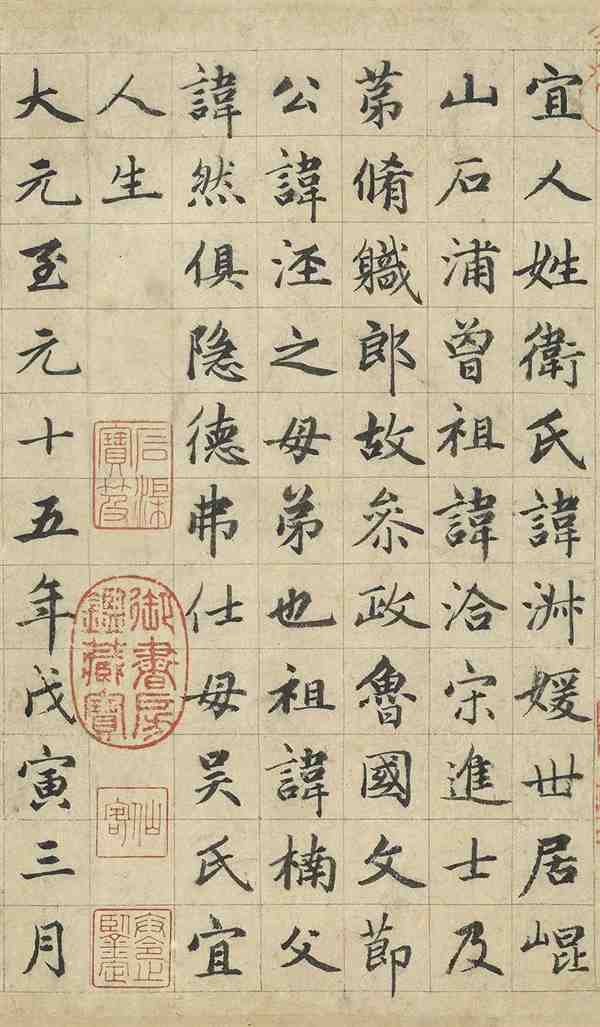 宜人姓衛氏諱淑媛世居崐
山石浦曾祖諱洽宋進士及
苐脩軄郎故叅政魯國文節
公諱涇之母弟也祖諱楠父
諱然俱隱德弗仕母吴氏宜
人生
石渠寶笈
御書房鑑藏寶
仙客
大元至元十五年戊寅三月